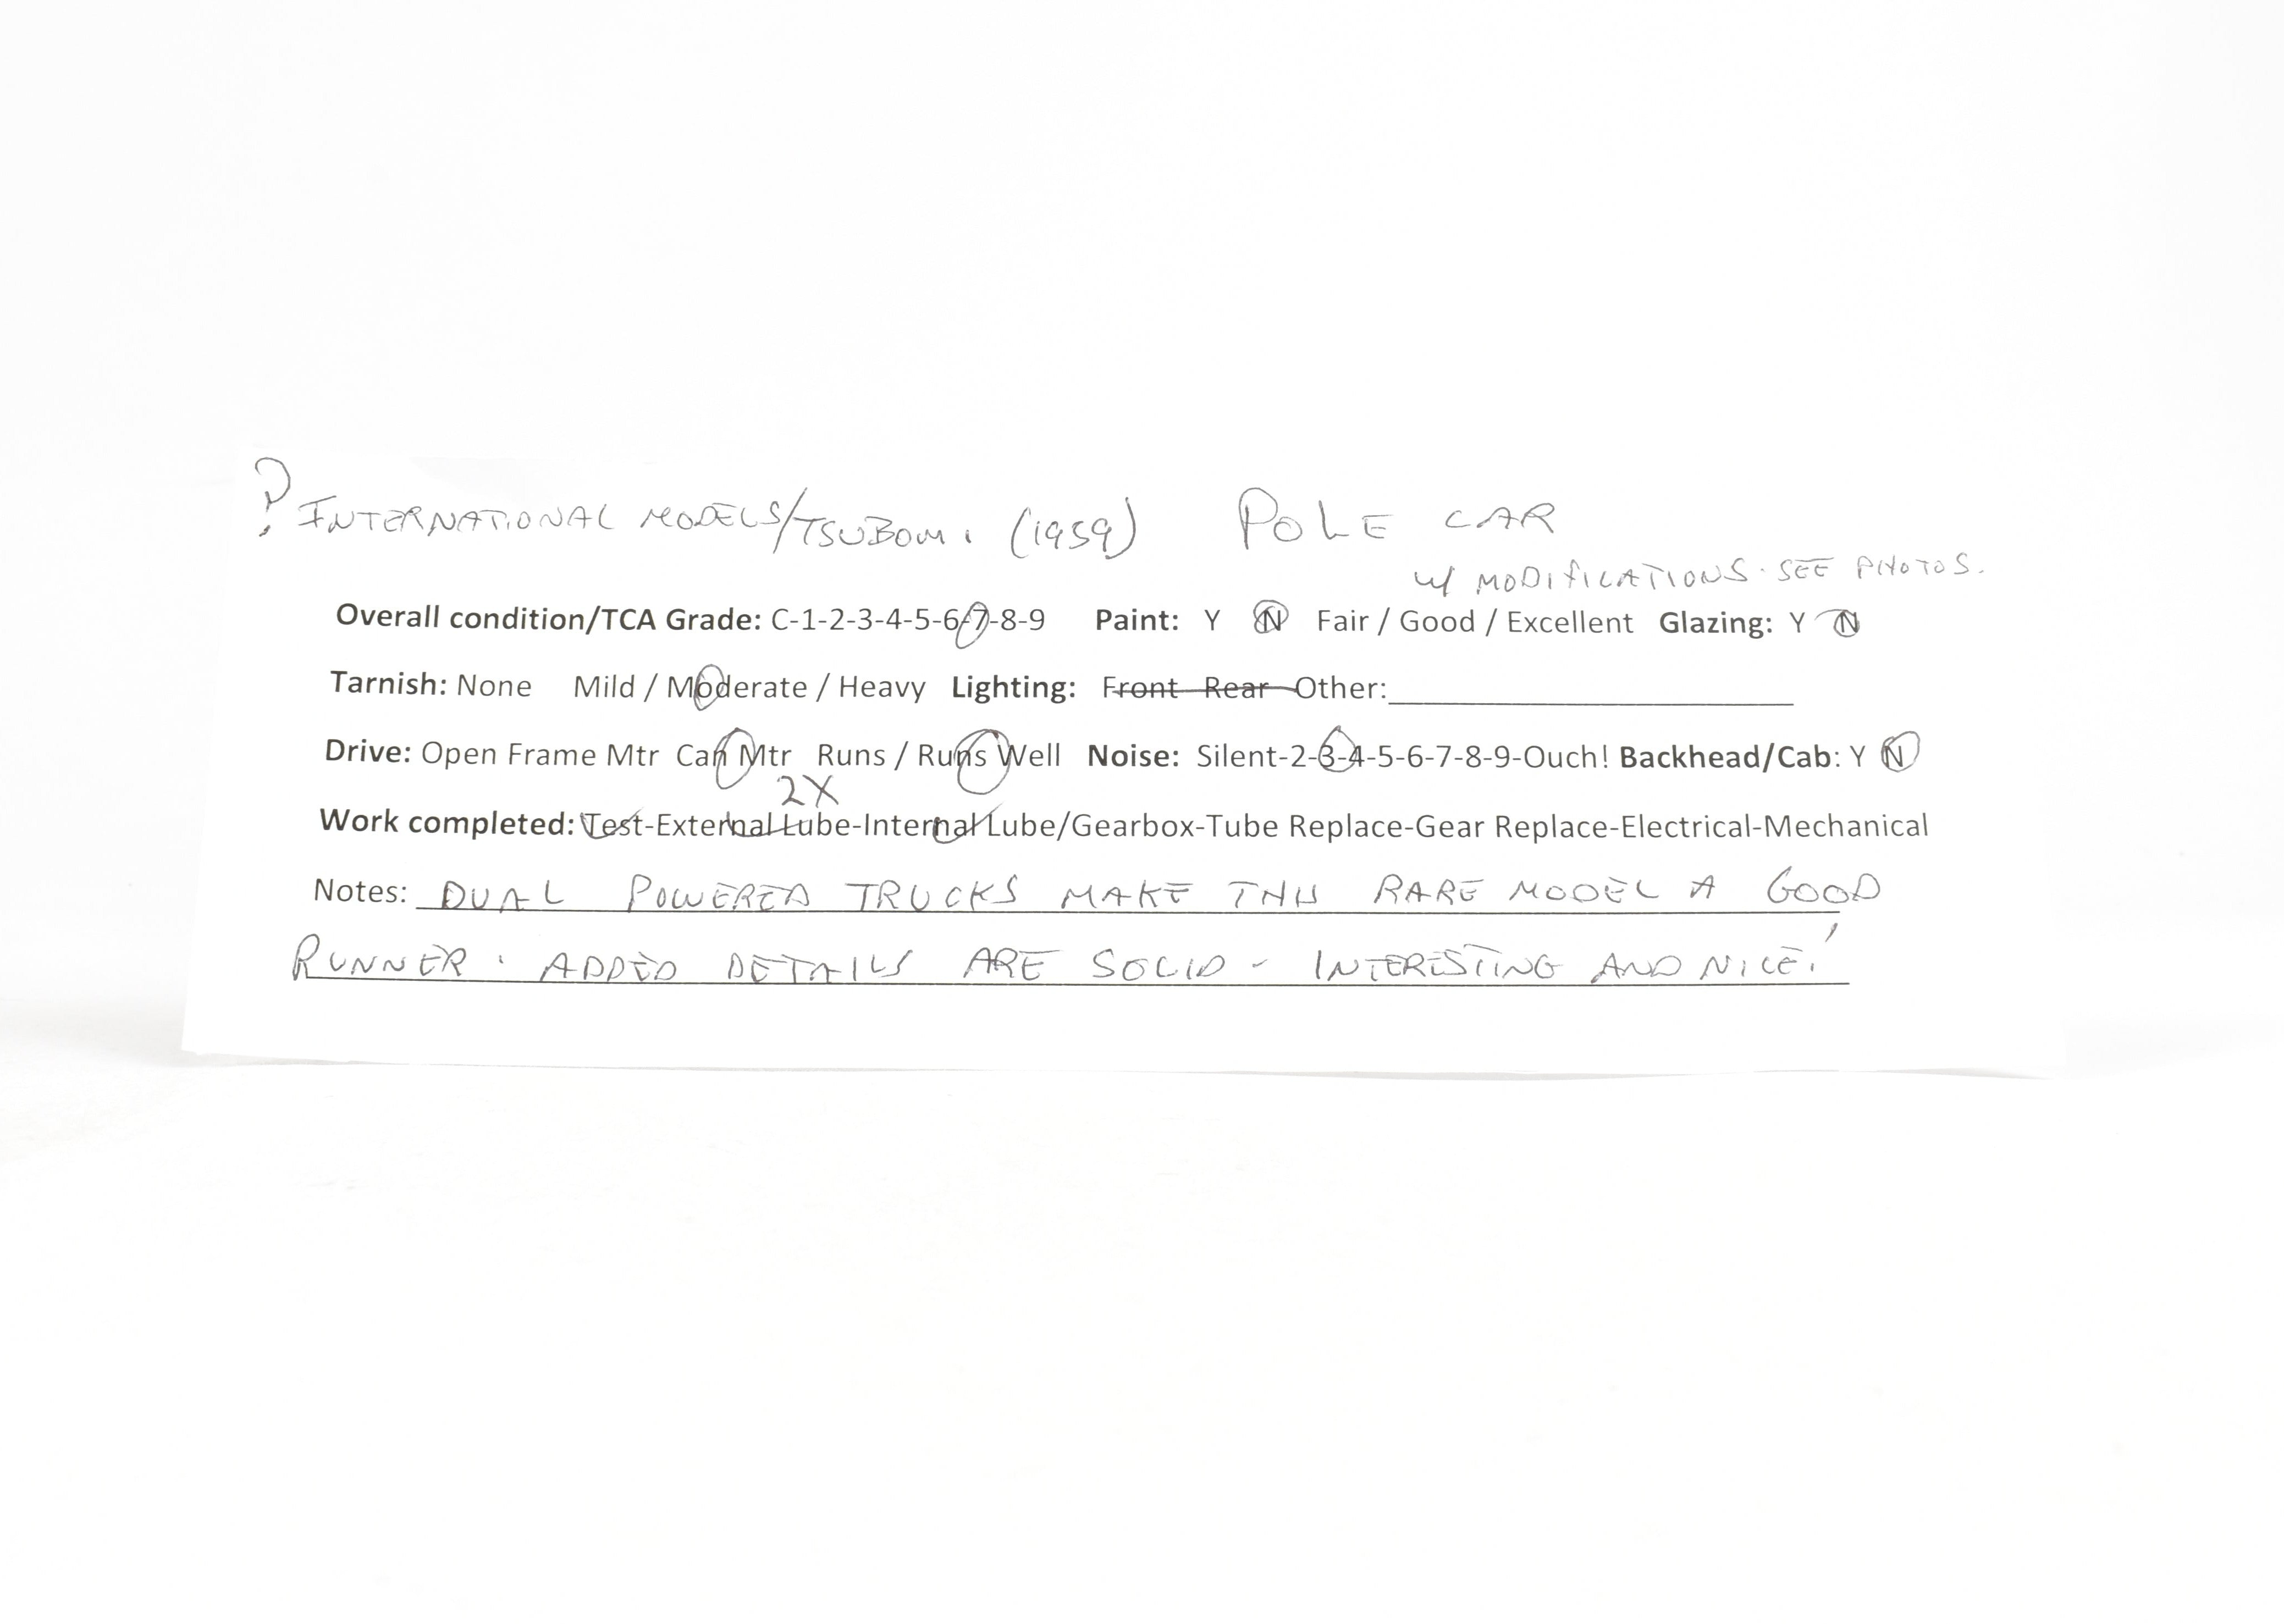 ? INTERNATIONAL MODELS/TSUBOMI (1959) POLE CAR
w/ MODIFICATIONS. SEE PHOTOS.
Overall condition/TCA Grade: C-1-2-3-4-5-6-7-8-9 Paint: Y N Fair / Good / Excellent Glazing: Y N
Tarnish: None Mild / Moderate / Heavy Lighting: Front Rear Other:
Drive: Open Frame Mtr Can Mtr Runs / Runs Well Noise: Silent-2-3-4-5-6-7-8-9-Ouch! Backhead/Cab: Y N
2X
Work completed: Test-External Lube-Internal Lube/Gearbox-Tube Replace-Gear Replace-Electrical-Mechanical
Notes: DUAL POWERED TRUCKS MAKE THIS RARE MODEL A GOOD
RUNNER. ADDED DETAILS ARE SOLID - INTERESTING AND NICE!